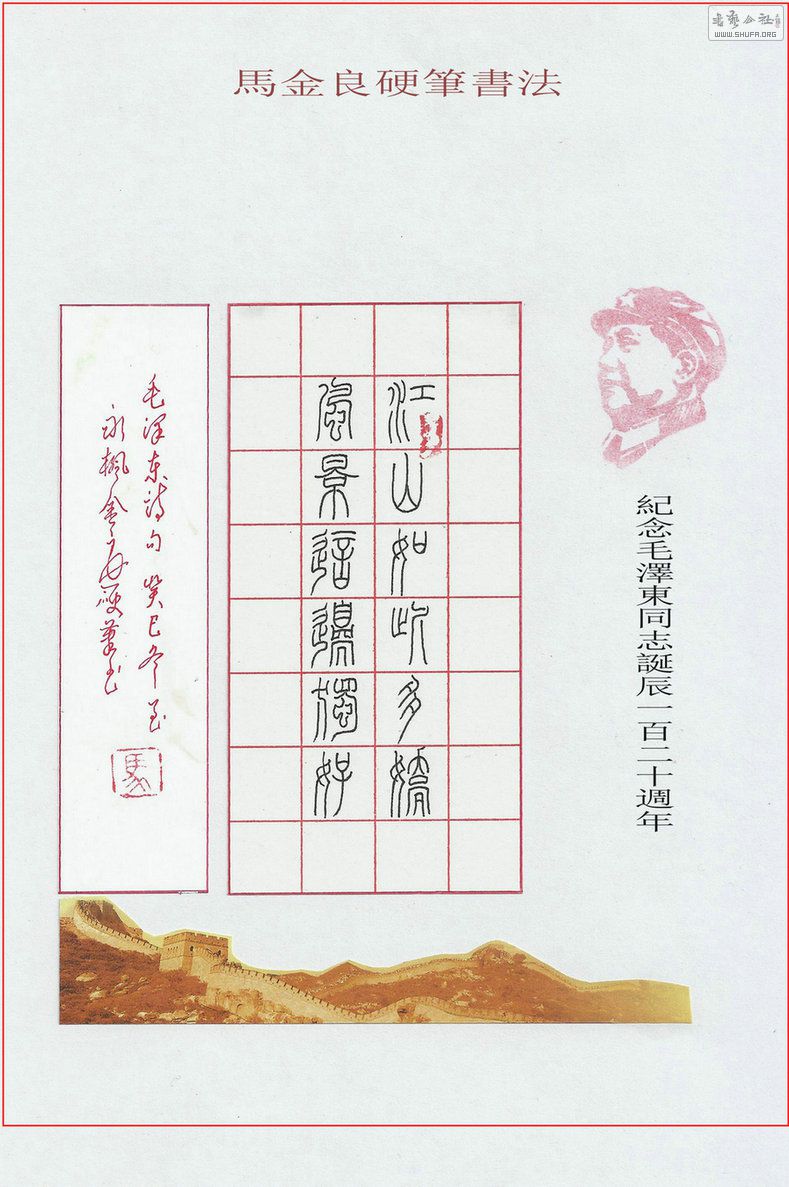 書藝公社
WWW.SHUFA.ORG
馬金良硬筆書法
紀念毛澤東同志誕辰一百二十週年
江山如此多嬌
風景這邊獨好
毛泽东诗句 癸巳冬至
永楓金良硬筆书
馬